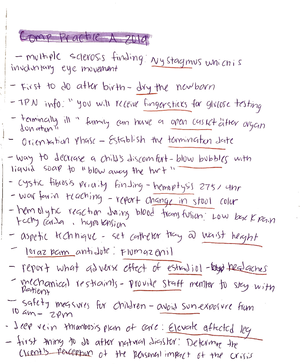 Comp Practice A 2019
- multiple sclerosis finding Nystagmus which is
involuntary eye movement
- First to do after birth - dry the newborn
- TPN info: "you will receive fingersticks for glucose testing
- terminally ill "family can have a open casket after organ
donation"
- Orientation phase - Establish the termination date
- way to decrease a child's discomfort - blow bubbles with
liquid soap to "blow away the hurt"
- cystic fibrosis priority finding - hemoptysis 275/4hr
- teaching - report change in stool color
- hemolytic reaction doing blood transfusion: Low back pain
tachycardia, hypotension
- aseptic technique - set catheter tray @ waist height
- lorazepam antidote: Flumazenil
- report what adverse effect of estradiol - headaches
- mechanical restraints - provide staff member to stay with
patient
- safety measures for children - avoid sun exposure from
10am - 2pm
- deep vein thrombosis plan of care: Elevate affected leg
- first thing to do after natural disaster: Determine the
client's perception of the personal impact of the crisis